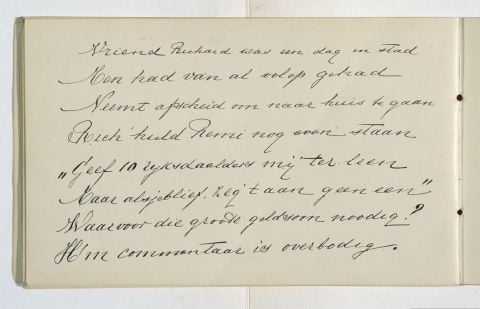 Vriend Richard was een dag in stad
Men had van al volop gehad
Neemt afscheid om naar huis te gaan
Rich' hield Remi nog even staan
„Geef 10 ryksdaalders mij ter leen
Maar alsjeblief, zeg 't aan geen een"
Waarvoor die groote geldsom noodig?
H'm commentaar is overbodig.